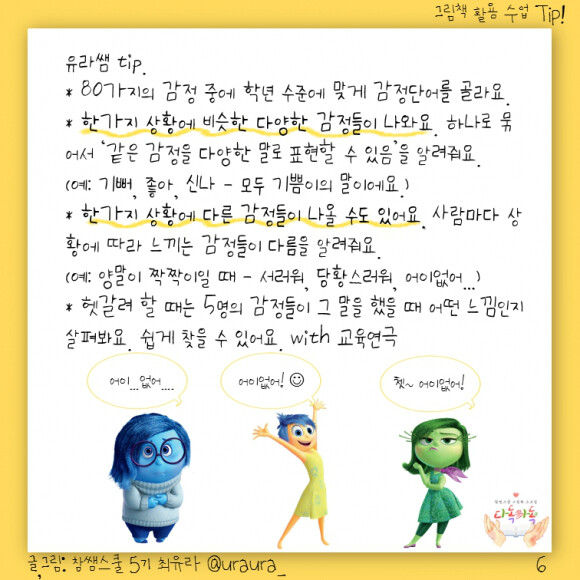 그림책 활용 수업 Tip!
유라쌤 tip.
* 80가지의 감정 중에 학년 수준에 맞게 감정단어를 골라요.
* 한가지 상황에 비슷한 다양한 감정들이 나와요. 하나로 묶
어서 '같은 감정을 다양한 말로 표현할 수 있음'을 알려줘요.
(예: 기뻐, 좋아, 신나 - 모두 기쁨이의 말이에요.)
* 한가지 상황에 다른 감정들이 나올 수도 있어요. 사람마다 상
황에 따라 느끼는 감정들이 다름을 알려줘요.
(예: 양말이 짝짝이일 때 - 서러워, 당황스러워, 어이없어...)
* 헷갈려 할 때는 5명의 감정들이 그 말을 했을 때 어떤 느낌인지
살펴봐요. 쉽게 찾을 수 있어요. with 교육연극
어이...없어....
어이없어! ☺
쳇~ 어이없어!
다독다독
글,그림: 참쌤스쿨 5기 최유라 @uraura_
6